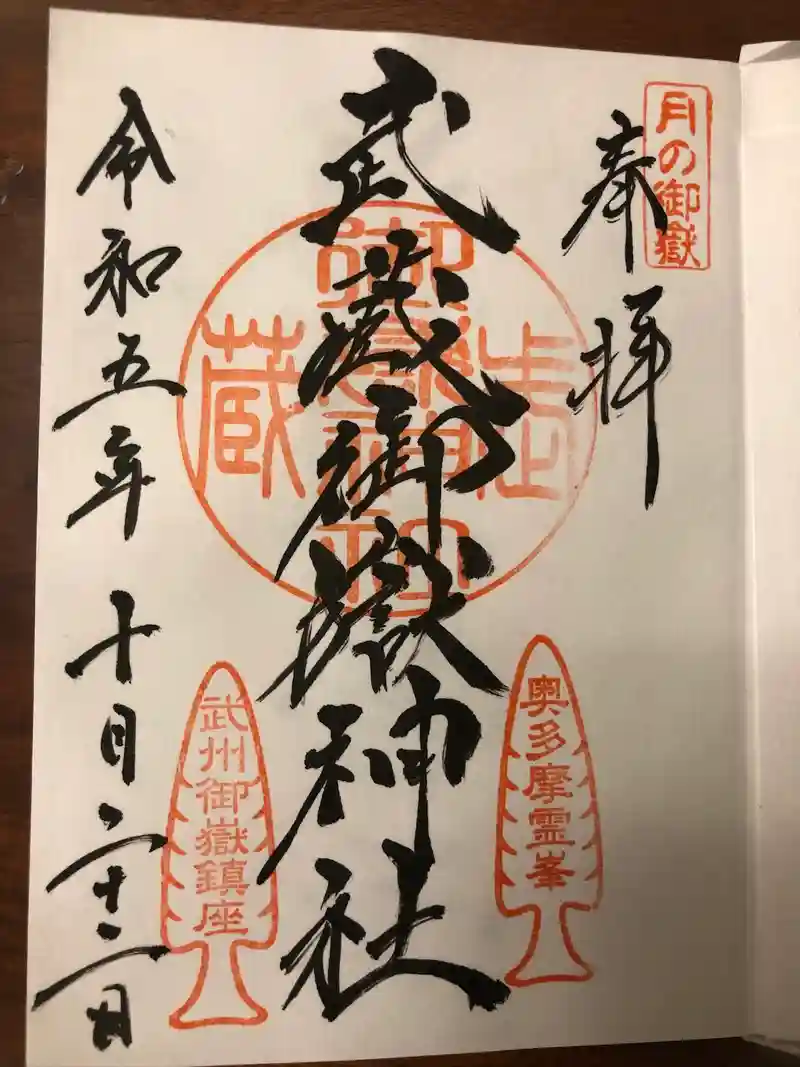 月の御嶽
奉拝
武蔵御嶽神社
武蔵御嶽神社
奥多摩霊峯
武州御嶽鎮座
令和五年十月二十二日